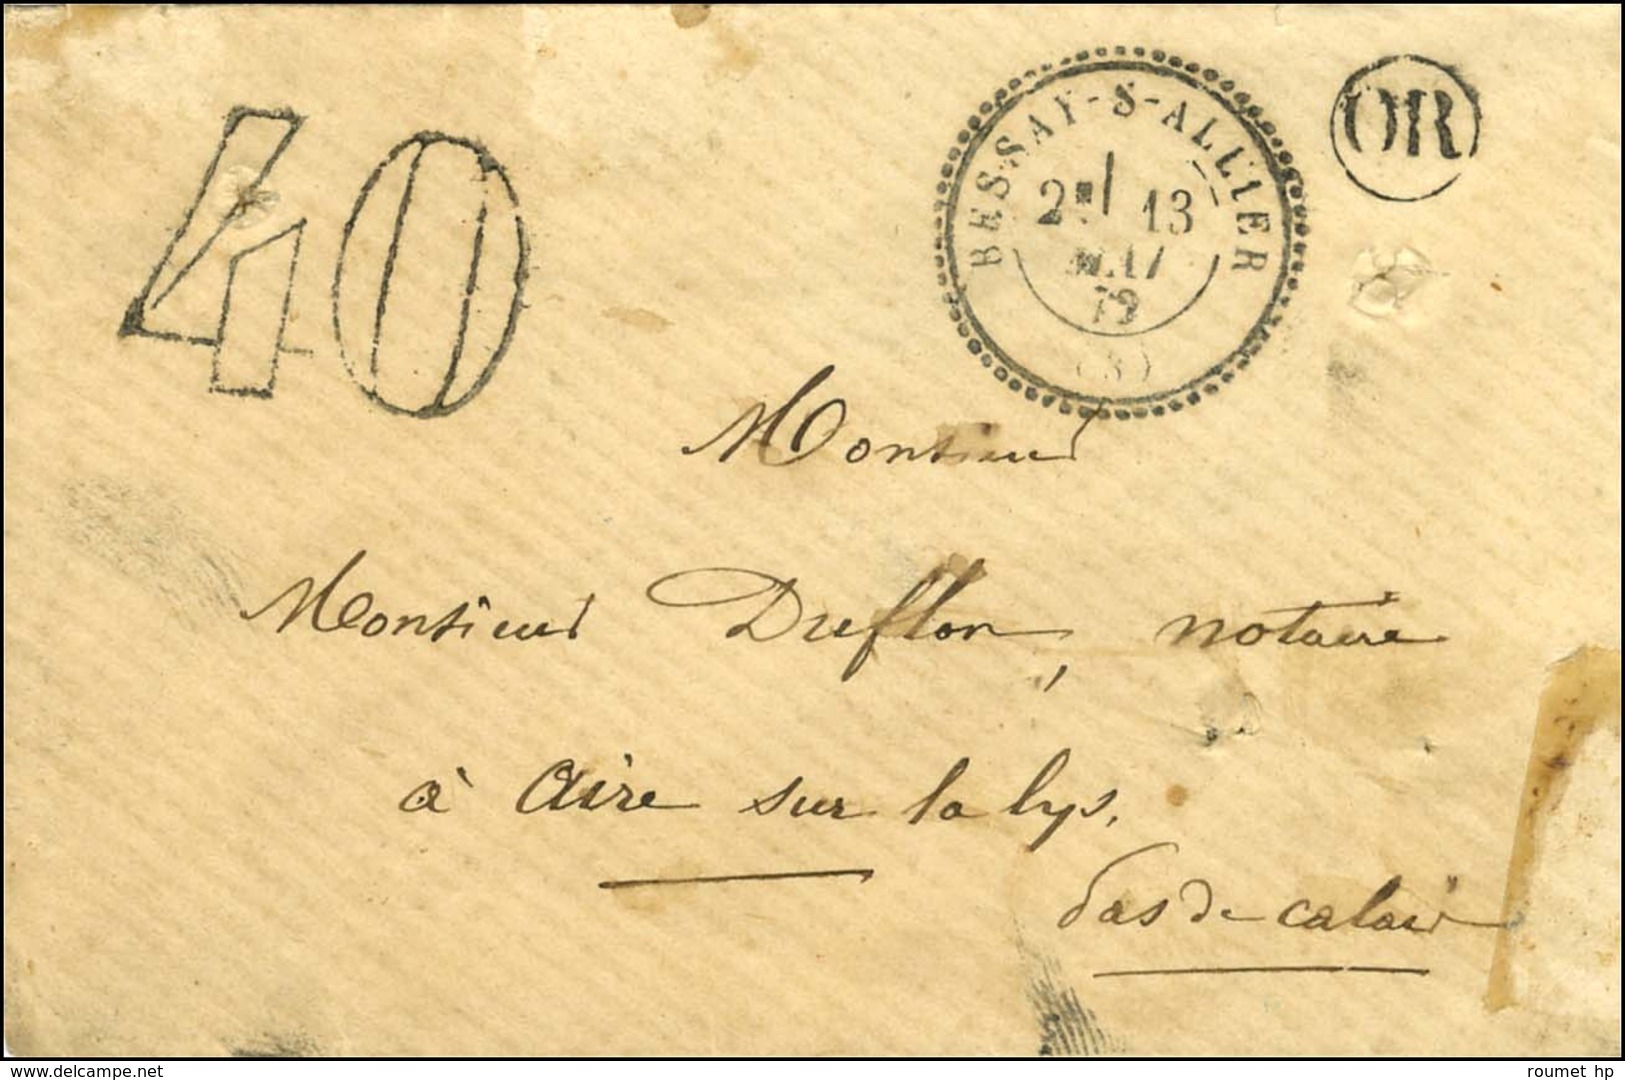 40
BESSAY-S-ALLIER
2E 13
MAI
79
(3)
OR
Monsieur
Monsieur Duflon, notaire
à Aire sur la lys.
Pas de calais
delcampe.net
roumet hp